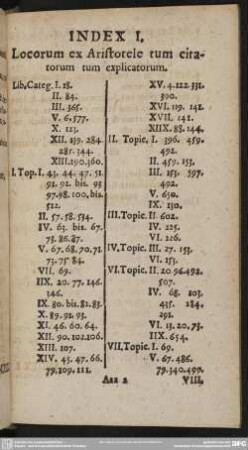 INDEX I.
Locorum ex Aristotele tum cita-
torum tum explicatorum.
Lib. Categ. I. 18.
II. 84.
III. 365.
V. 6. 577.
X. 123.
XII. 139. 284.
285. 344.
XIII. 190. 360.
I. Top. I. 43. 44. 47. 51.
92. bis. 93
97. 98. 100. bis.
512.
II. 57. 58. 534.
IV. 63. bis. 67.
73. 86. 87.
V. 67. 68. 70. 71.
73. 75 84.
VII. 69.
IIX. 20. 77. 146.
346.
IX. 80. bis. 82. 83.
X. 89. 91. 93.
XI. 46. 60. 64.
XII. 90. 102. 106.
XIII. 107.
XIV. 45. 47. 66.
79. 109. 111.
XV. 4. 122. 331.
390.
XVI. 119. 141.
XVII. 141.
XIIX. 83. 144.
II. Topic. I. 396. 459.
492.
II. 459. 153.
III. 153. 397.
492.
V. 650.
IX. 130.
III. Topic. II. 602.
IV. 125.
VI. 126.
IV. Topic. III. 27. 153.
VI. 153.
VI. Topic. II. 20. 96. 492.
507.
IV. 68. 203.
435. 284.
291.
VI. 13. 20. 73.
IIX. 654.
VII. Topic. I. 69.
V. 67. 486.
79. 340. 499.
Aaa 2
VIII.